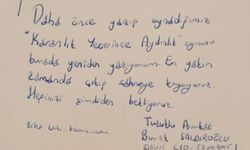 Daha önce yazıp oynadığımız
"Karanlık Yeterince Aydınlık" oyununu
burada yeniden yazıyorum. En yakın
zamanda çıkıp sahneye koyacağız.
Hepinizi şimdiden bekliyoruz.
Tutuklu Avukat
Burak SALDIROĞLU